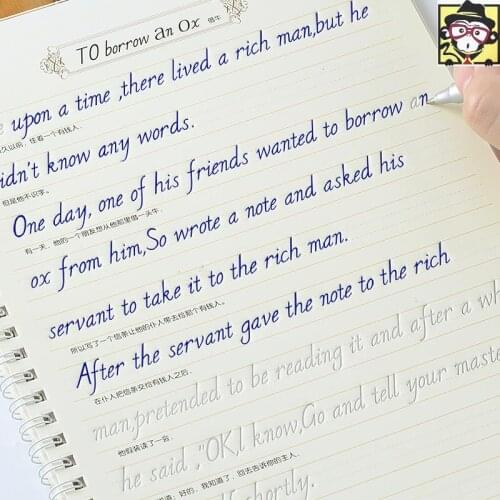 TO borrow an Ox 借牛
upon a time ,there lived a rich man,but he
久以前，住着一个有钱人，
didn't know any words.
但是他不识字。
One day, one of his friends wanted to borrow an
有一天，他的一个朋友想从他那里借一头牛，
ox from him,So wrote a note and asked his
servant to take it to the rich man.
所以写了一个信条让他的仆人带去给那个有钱人。
After the servant gave the note to the rich
在仆人把信条交给有钱人之后，
man,pretended to be reading it and after a wh
他假装读了一会，
he said ,"OK,I know,Go and tell your maste
说道：好的，我知道了，回去告诉你的主人，
shortly.